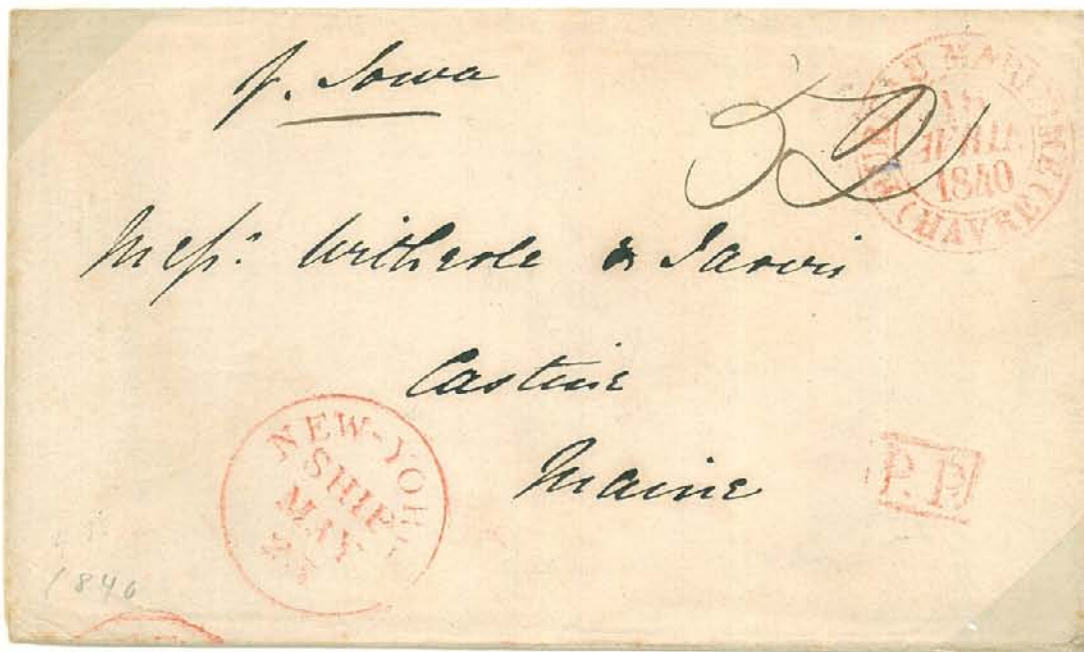 p. Iowa
52
AVRIL
1840
(HAVRE)
Mess.rs Witherle & Jarvis
Castine
Maine
NEW-YORK
SHIP
MAY
P.P.
1840